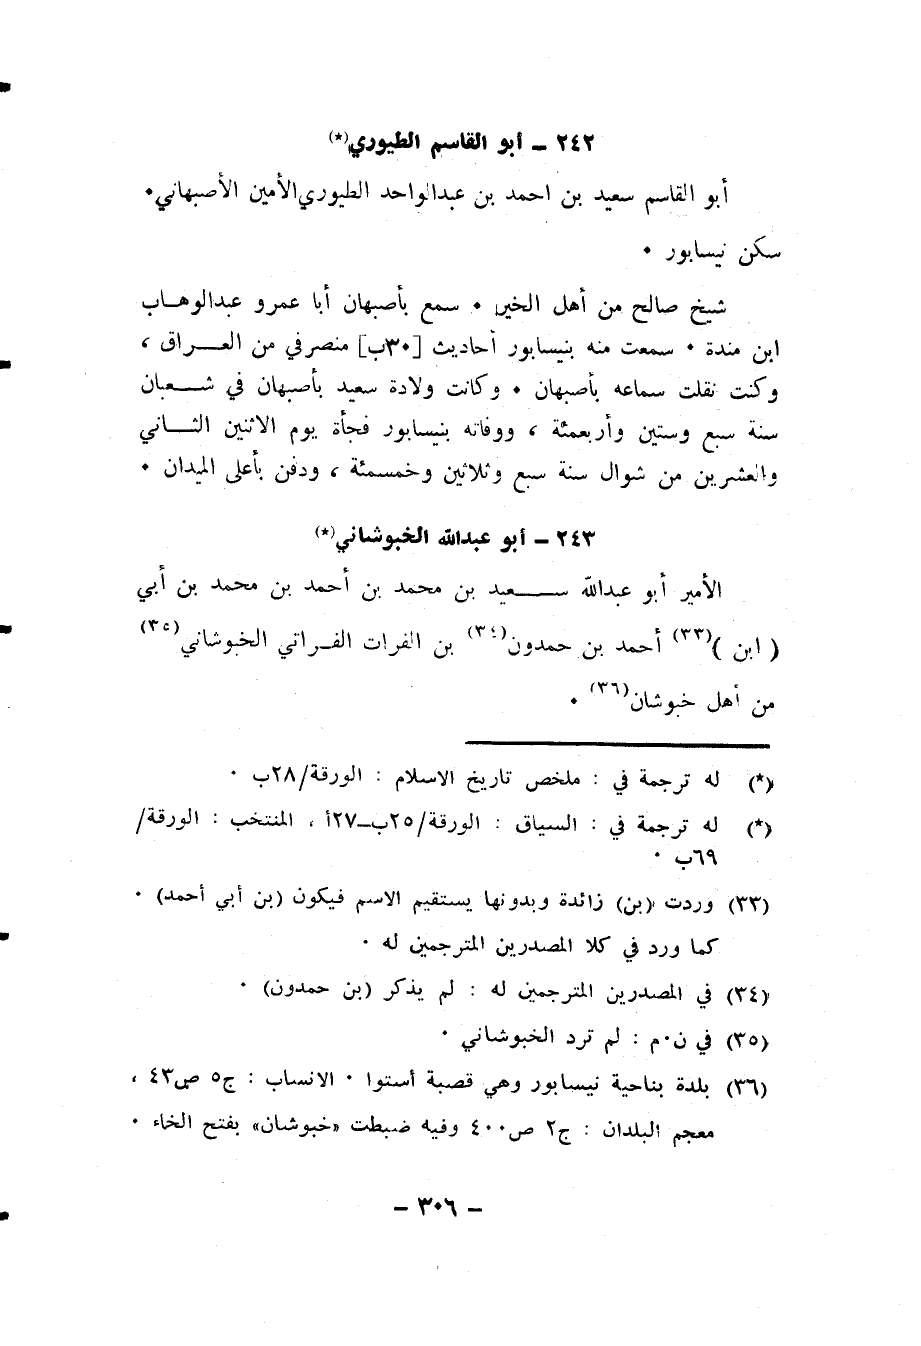 ٢٤٢ ــ أبو القاسم الطيوري(*)
أبو القاسم سعيد بن احمد بن عبدالواحد الطيوري الأمين الأصبهاني٠
سكن نيسابور ٠
شيخ صالح من أهل الخير ٠ سمع بأصبهان أبا عمرو عبدالوهاب
ابن مندة ٠ سمعت منه بنيسابور أحاديث [٣٠ب] منصرفي من العراق ،
وكنت نقلت سماعه بأصبهان ٠ وكانت ولادة سعيد بأصبهان في شعبان
سنة سبع وستين وأربعمئة ، ووفاته بنيسابور فجأة يوم الاثنين الثاني
والعشرين من شوال سنة سبع وثلاثين وخمسمئة ، ودفن بأعلى الميدان ٠
٢٤٣ ــ أبو عبدالله الخبوشاني(*)
الأمير أبو عبدالله سعيد بن محمد بن أحمد بن محمد بن أبي
( ابن )(٣٣) أحمد بن حمدون(٣٤) بن الفرات الفراتي الخبوشاني(٣٥)
من أهل خبوشان(٣٦) ٠
(*) له ترجمة في : ملخص تاريخ الاسلام : الورقة/٢٨ب ٠
(*) له ترجمة في : السياق : الورقة/٢٥ب ــ٢٧أ ، المنتخب : الورقة/
٦٩ب ٠
(٣٣) وردت (بن) زائدة وبدونها يستقيم الاسم فيكون (بن أبي أحمد) ٠
كما ورد في كلا المصدرين المترجمين له ٠
(٣٤) في المصدرين المترجمين له : لم يذكر (بن حمدون) ٠
(٣٥) في ن٠م : لم ترد الخبوشاني ٠
(٣٦) بلدة بناحية نيسابور وهي قصبة أستوا ٠ الانساب : ج٥ ص٤٣ ،
معجم البلدان : ج٢ ص٤٠٠ وفيه ضبطت «خبوشان» بفتح الخاء ٠
ــ ٣٠٦ ــ